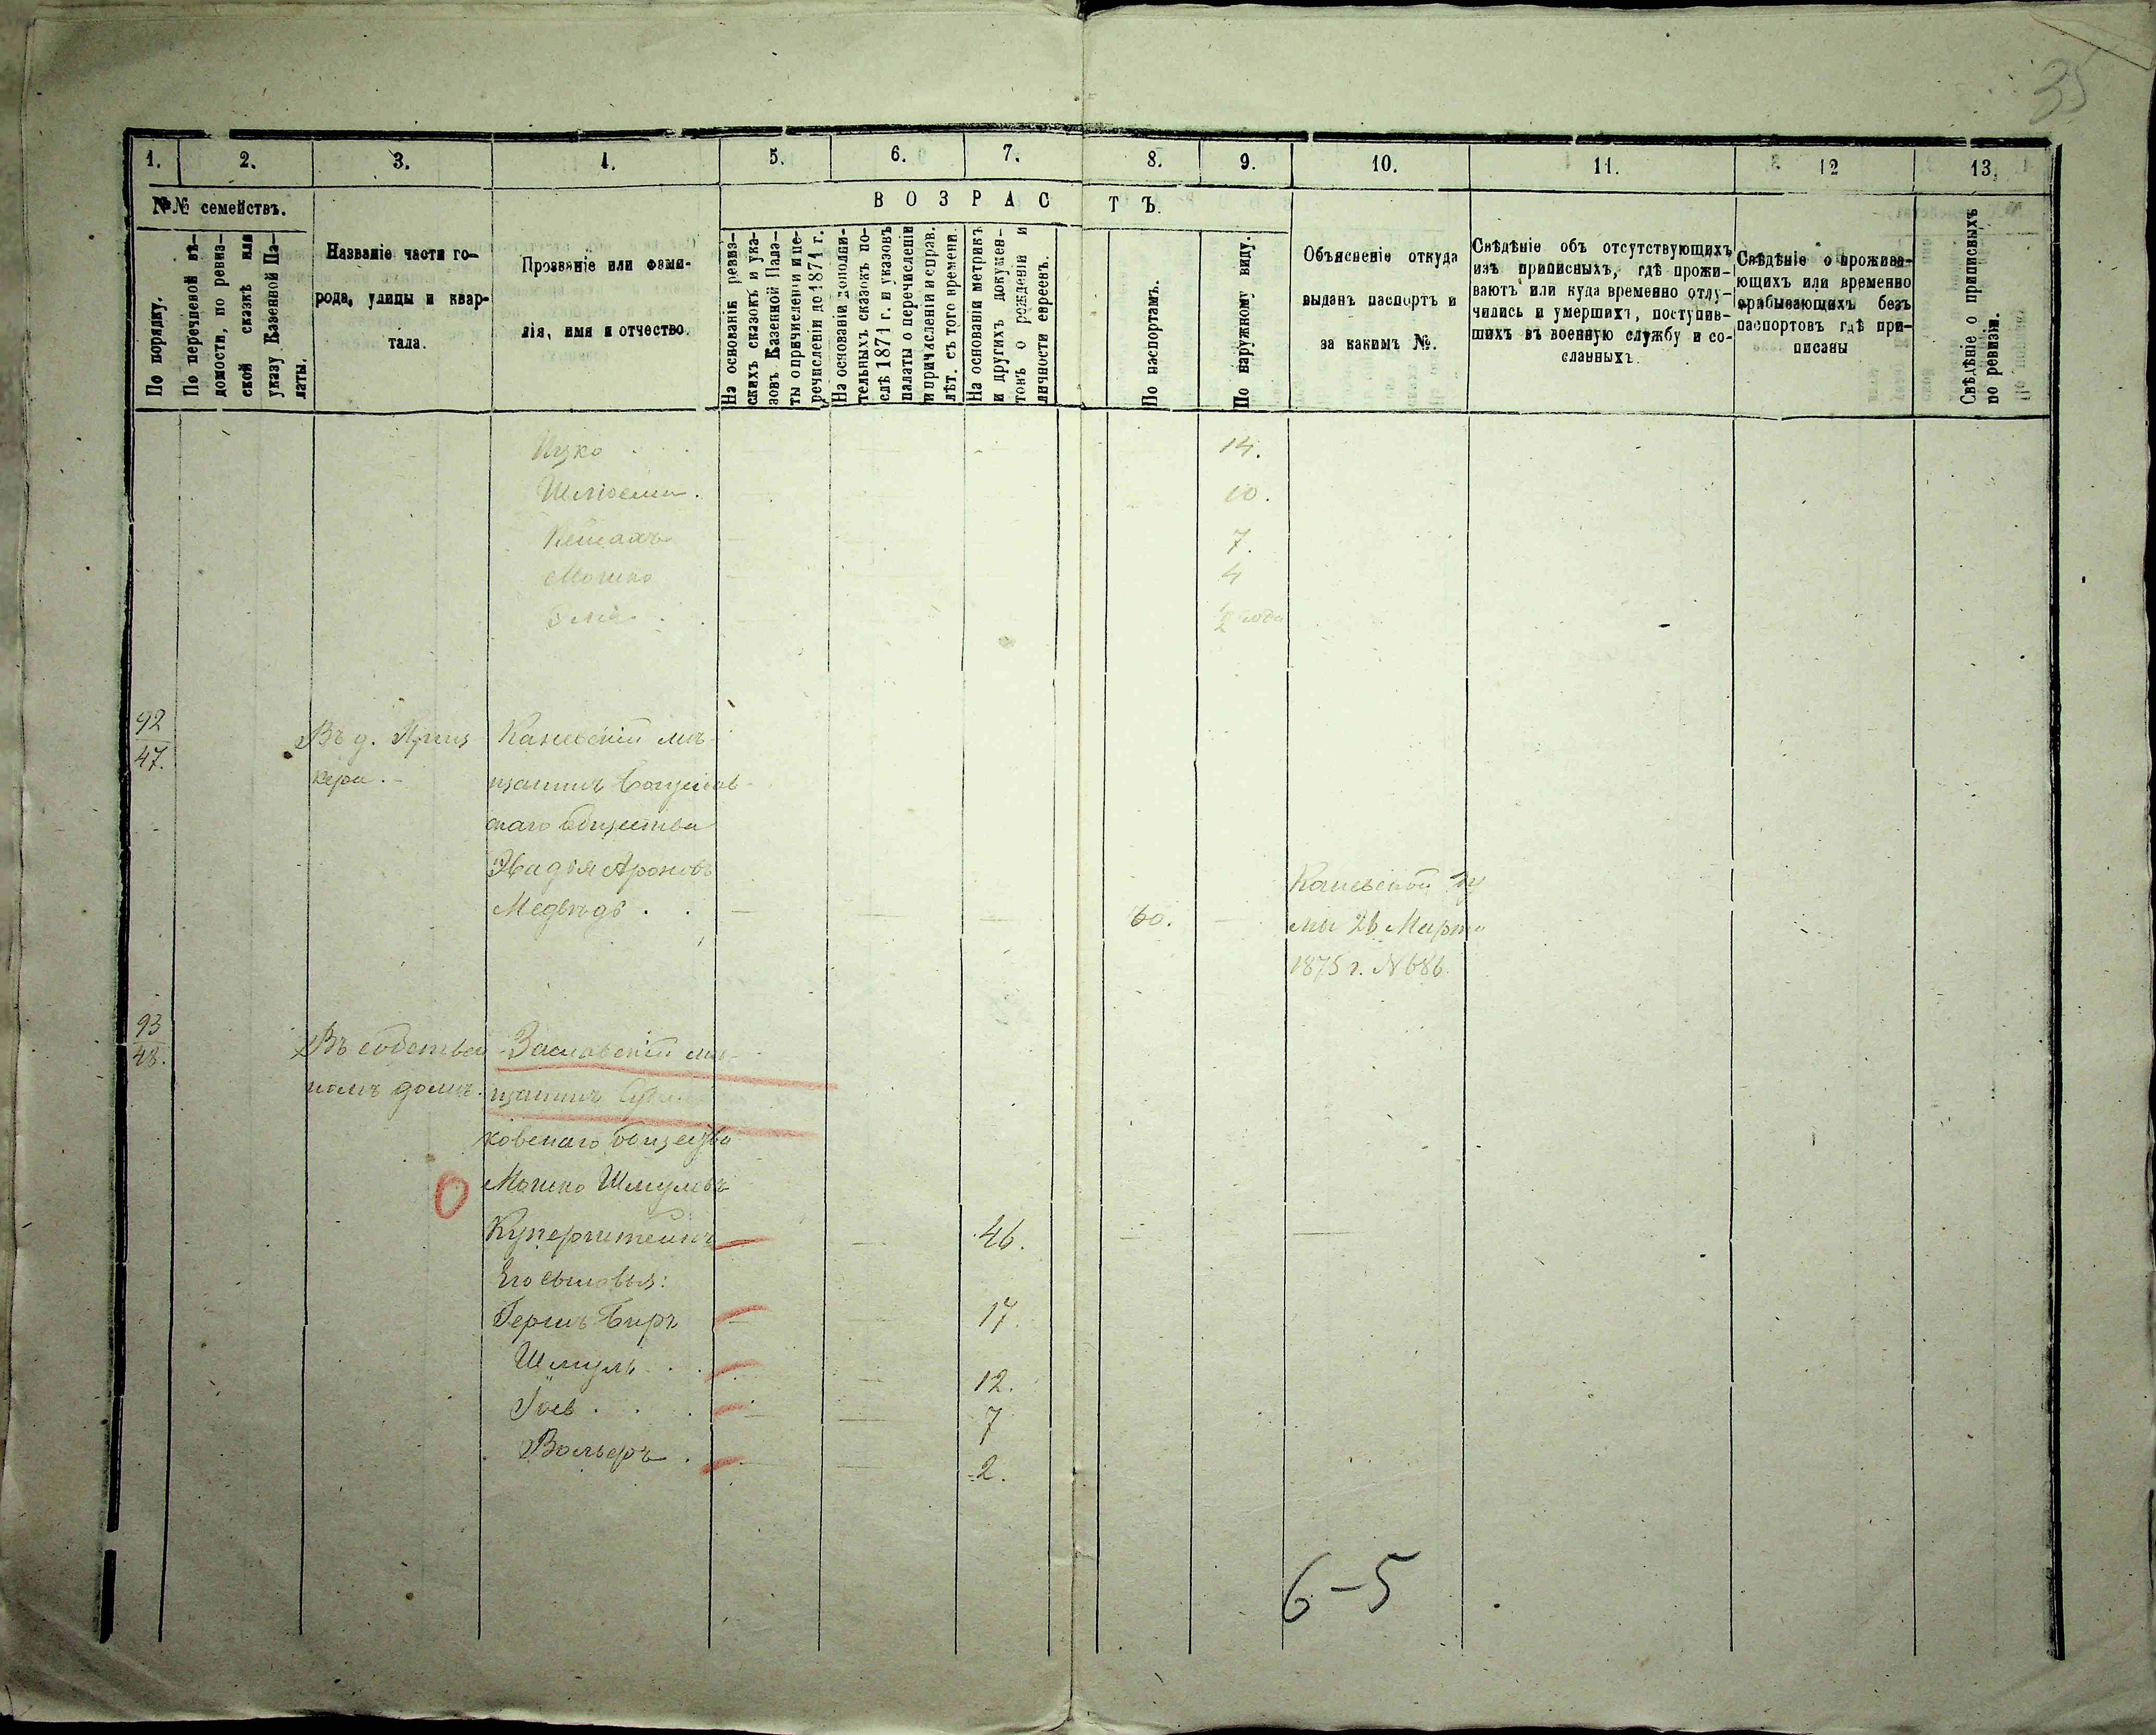 35
1. 2. 3. 4. 5. 6. 7. 8. 9. 10. 11. 12 13.
№№ семействъ.
По порядку.
По перечневой вѣ-
домости, по ревиз-
ской сказкѣ или
указу Казенной Па-
латы.
Названіе части го-
рода, улицы и квар-
тала.
Прозвяніе или фами-
лія, имя и отчество.
ВОЗРАСТЪ.
На основаніи ревиз-
скихъ сказокъ и ука-
зовъ Казенной Пала-
ты о причисленіи и пе-
речисленіи до 1871 г.
На основаніи дополни-
тельныхъ сказокъ по-
слѣ 1871 г. и указовъ
палаты о перечисленіи
и причисленіи и справ.
лѣт. съ того времени.
На основаніи метрикъ
и другихъ докумен-
товъ о рожденіи и
личности евреевъ.
По паспортамъ.
По наружному виду.
Объясненіе откуда
выданъ паспортъ и
за какимъ №.
Свѣдѣніе объ отсутствующихъ
изъ приписныхъ, гдѣ прожи-
ваютъ или куда временно отлу-
чились и умершихъ, поступив-
шихъ въ военную службу и со-
сланныхъ.
Свѣдѣніе о прожива-
ющихъ или временно
прибывающихъ безъ
паспортовъ гдѣ при-
писаны
Свѣдѣніе о приписныхъ
по ревизіи.
Ицко 14.
10.
7.
Мошко 4
1/2 года
92
47.
Въ д.
кера.
Каневскій мѣ-
щанинъ Богуслав-
скаго общества
Ароновъ
Медвѣдь 60.
Каневской Ду
мы 26 Марта
1875 г. № 686.
93
48.
Въ собствен
номъ домѣ.
Заславскій мѣ-
щанинъ
ковскаго общества
Мошко Шмулевъ
Куперштейнъ 46.
Его сыновья:
Гершъ Беръ 17.
Шмуль 12.
7
Вольфъ 2.
6-5